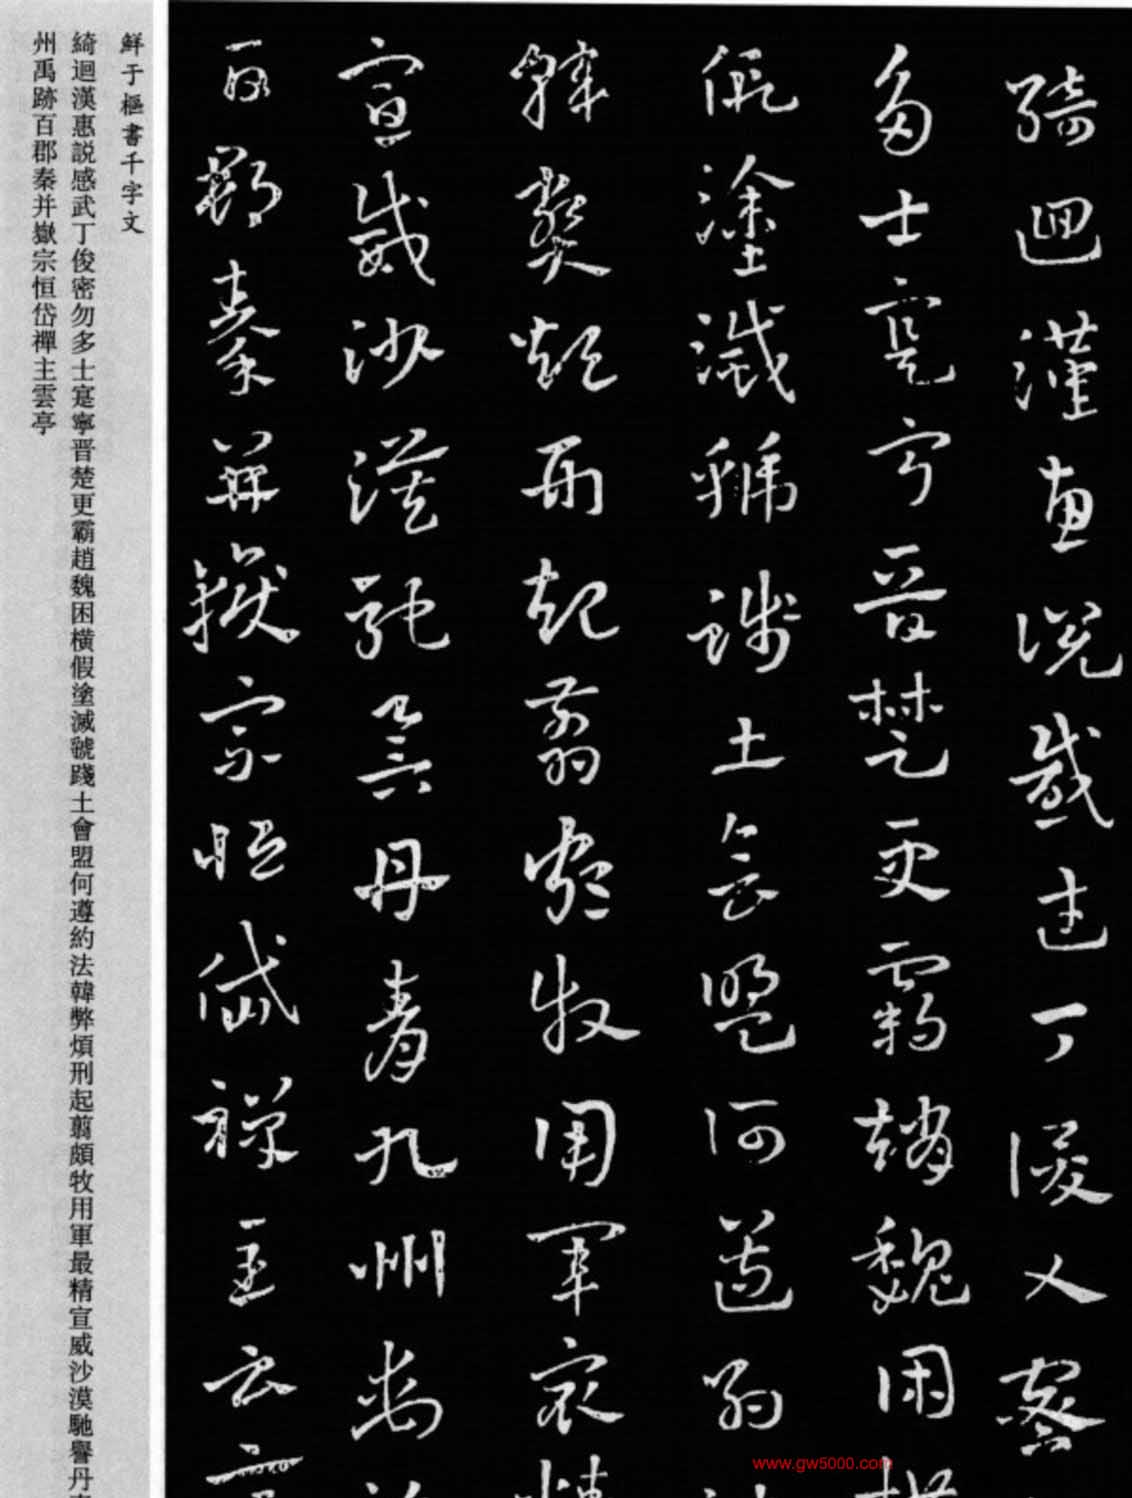 綺迴漢惠說感武丁俊乂密
多士寔寧晉楚更霸趙魏困橫
假塗滅虢踐土會盟何遵約
韓弊煩刑起翦頗牧用軍最精
宣威沙漠馳譽丹青九州禹
百郡秦并嶽宗恒岱禪主云亭
鮮于樞書千字文
綺迴漢惠説感武丁俊密勿多士寔寧晋楚更霸趙魏困橫假塗滅虢踐土會盟何遵約法韓弊煩刑起翦頗牧用軍最精宣威沙漠馳譽丹
州禹跡百郡秦并嶽宗恒岱禪主雲亭
www.gw5000.com